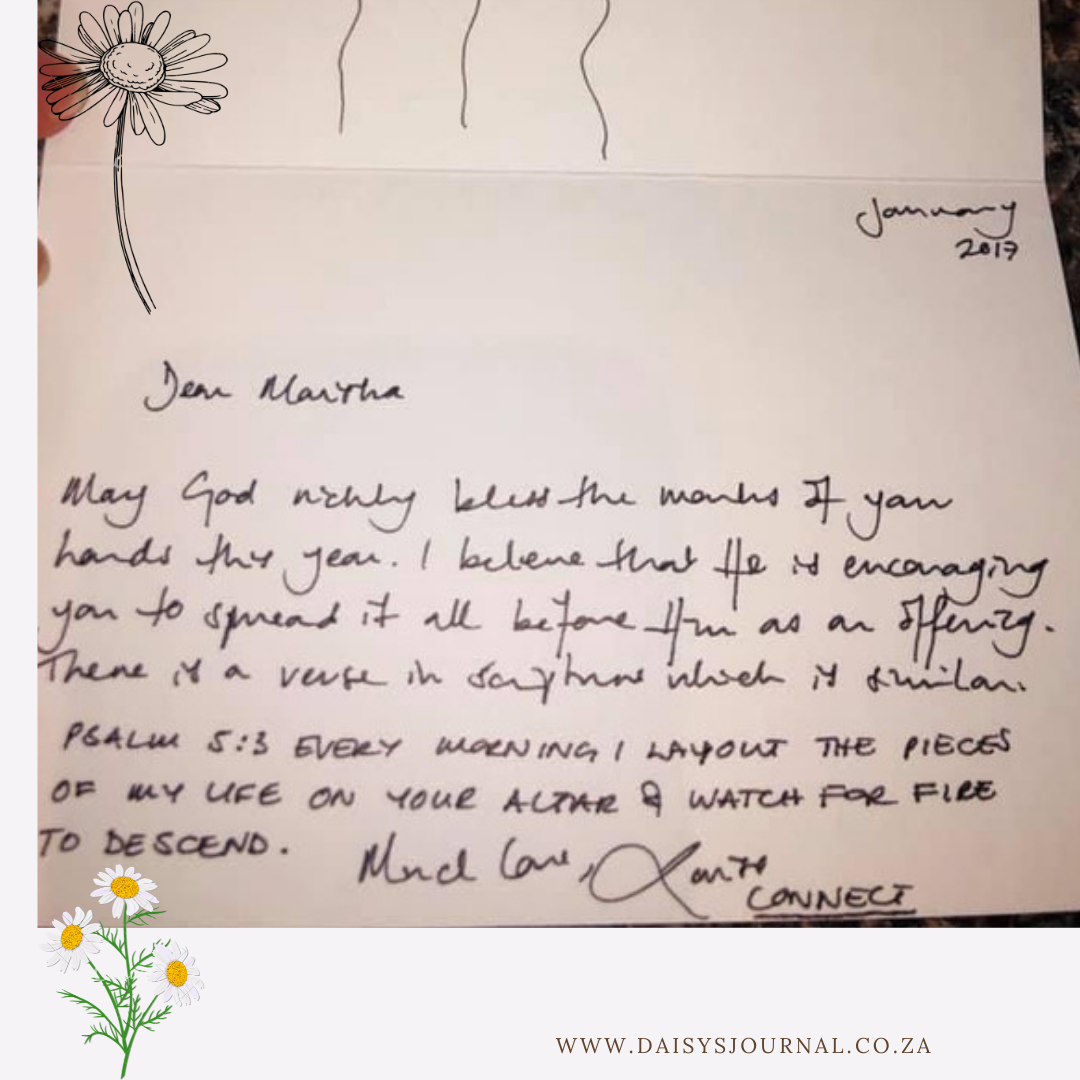 January
2017
Dear Maritha
May God richly bless the works of your
hands this year. I believe that He is encouraging
you to spread it all before Him as an offering.
There is a verse in scripture which is similar.
PSALM 5:3 EVERY MORNING I LAYOUT THE PIECES
OF MY LIFE ON YOUR ALTAR & WATCH FOR FIRE
TO DESCEND.
Much Love,
CONNECT
WWW.DAISYSJOURNAL.CO.ZA